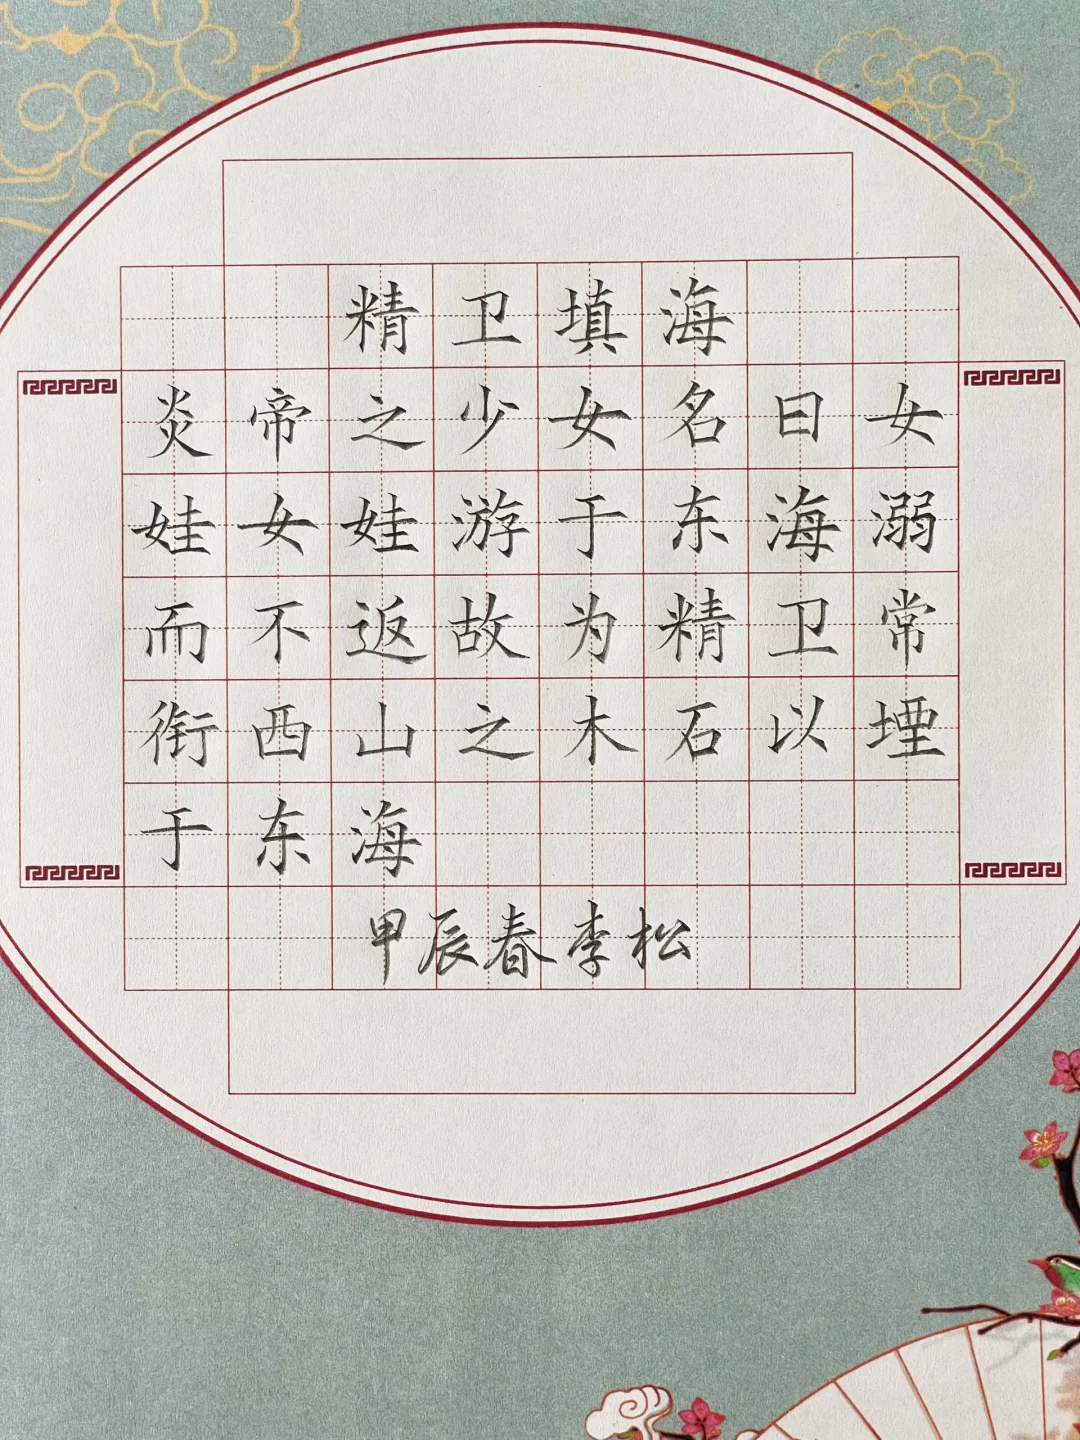 精卫填海
炎帝之少女名曰女
娃女娃游于东海溺
而不返故为精卫常
衔西山之木石以堙
于东海
甲辰春李松